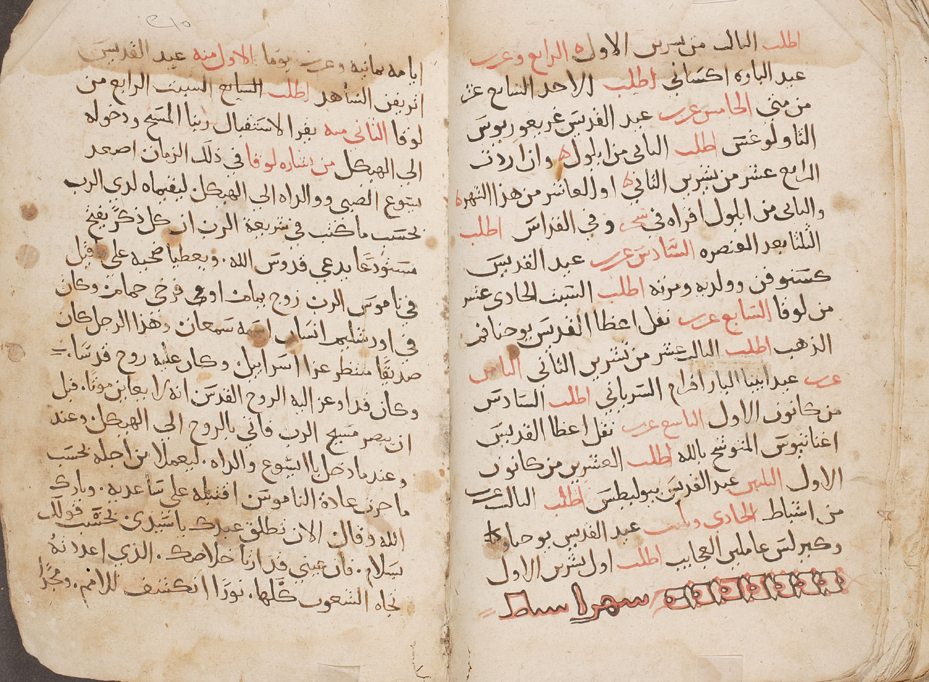 اطلب الثالث من تشرين الاول الرابع وعرب
عيد الباره اكساني اطلب الاحد السابع عشر
من متي الخامس عرب عيد القديس غريغوريوس
الثاولوغس اطلب الثاني من ايلول وان اردت
الرابع عشر من تشرين الثاني او العاشر من هذا الشهر
والثاني من ايلول اقراه في وفي القداس اطلب
الثلثا بعد العنصره السادس عرب عيد القديس
كسنوفن وولديه ومرته اطلب السبت الحادي عشر
من لوقا السابع عرب نقل اعظا القديس يوحنا فم
الذهب اطلب الثالث عشر من تشرين الثاني الثامن
عرب عيد ابينا البار افرام السرياني اطلب السادس
من كانون الاول التاسع عرب نقل اعظا القديس
اغناتيوس المتوشح بالله اطلب العشرين من كانون
الاول الثلثين عيد القديس ايبوليطس اطلب الثالث عرب
من اشباط الحادي وثلثين عيد القديس يوحنا
وكيرلس عاملين العجايب اطلب اول تشرين الاول
شهر اشباط
ايامه ثمانيه وعرب يوما الاول منه عيد القديس
اتريفن الشاهد اطلب السابع السبت الرابع من
لوقا الثاني منه يقرا لاستقبال ربنا المسيح ودخوله
الي الهيكل من بشاره لوقا في ذلك الزمان اصعد
بيسوع الصبي والداه الي الهيكل ليقيماه لدي الرب
بحسب ما كتب في شريعة الرب ان كل ذكر يفتح
مستودعا يدعي قدوس الله ويعطيا ضحيه علي ما قيل
في ناموس الرب زوج يمام او فرخي حمام وكان
في اورشليم انسان اسمه سمعان وهذا الرجل كان
صديقا منتظر عزا اسراييل وكان عليه روح قدسا
وكان قد اوعز اليه الروح القدس انه لا يعاين موتا قبل
ان يبصر مسيح الرب فاتي بالروح الي الهيكل وعند
وعند ما دخل بايسوع والداه ليعملا من اجله بحسب
ما جرت عادة الناموس اقتبله علي ساعديه وبارك
الله وقال الان تطلق عبدك يا سيدي بحسب قولك
بسلام فان عيني قد ارتا خلاصك الذي اعددته
تجاه الشعوب كلها نورا انكشف للامم ومجدا